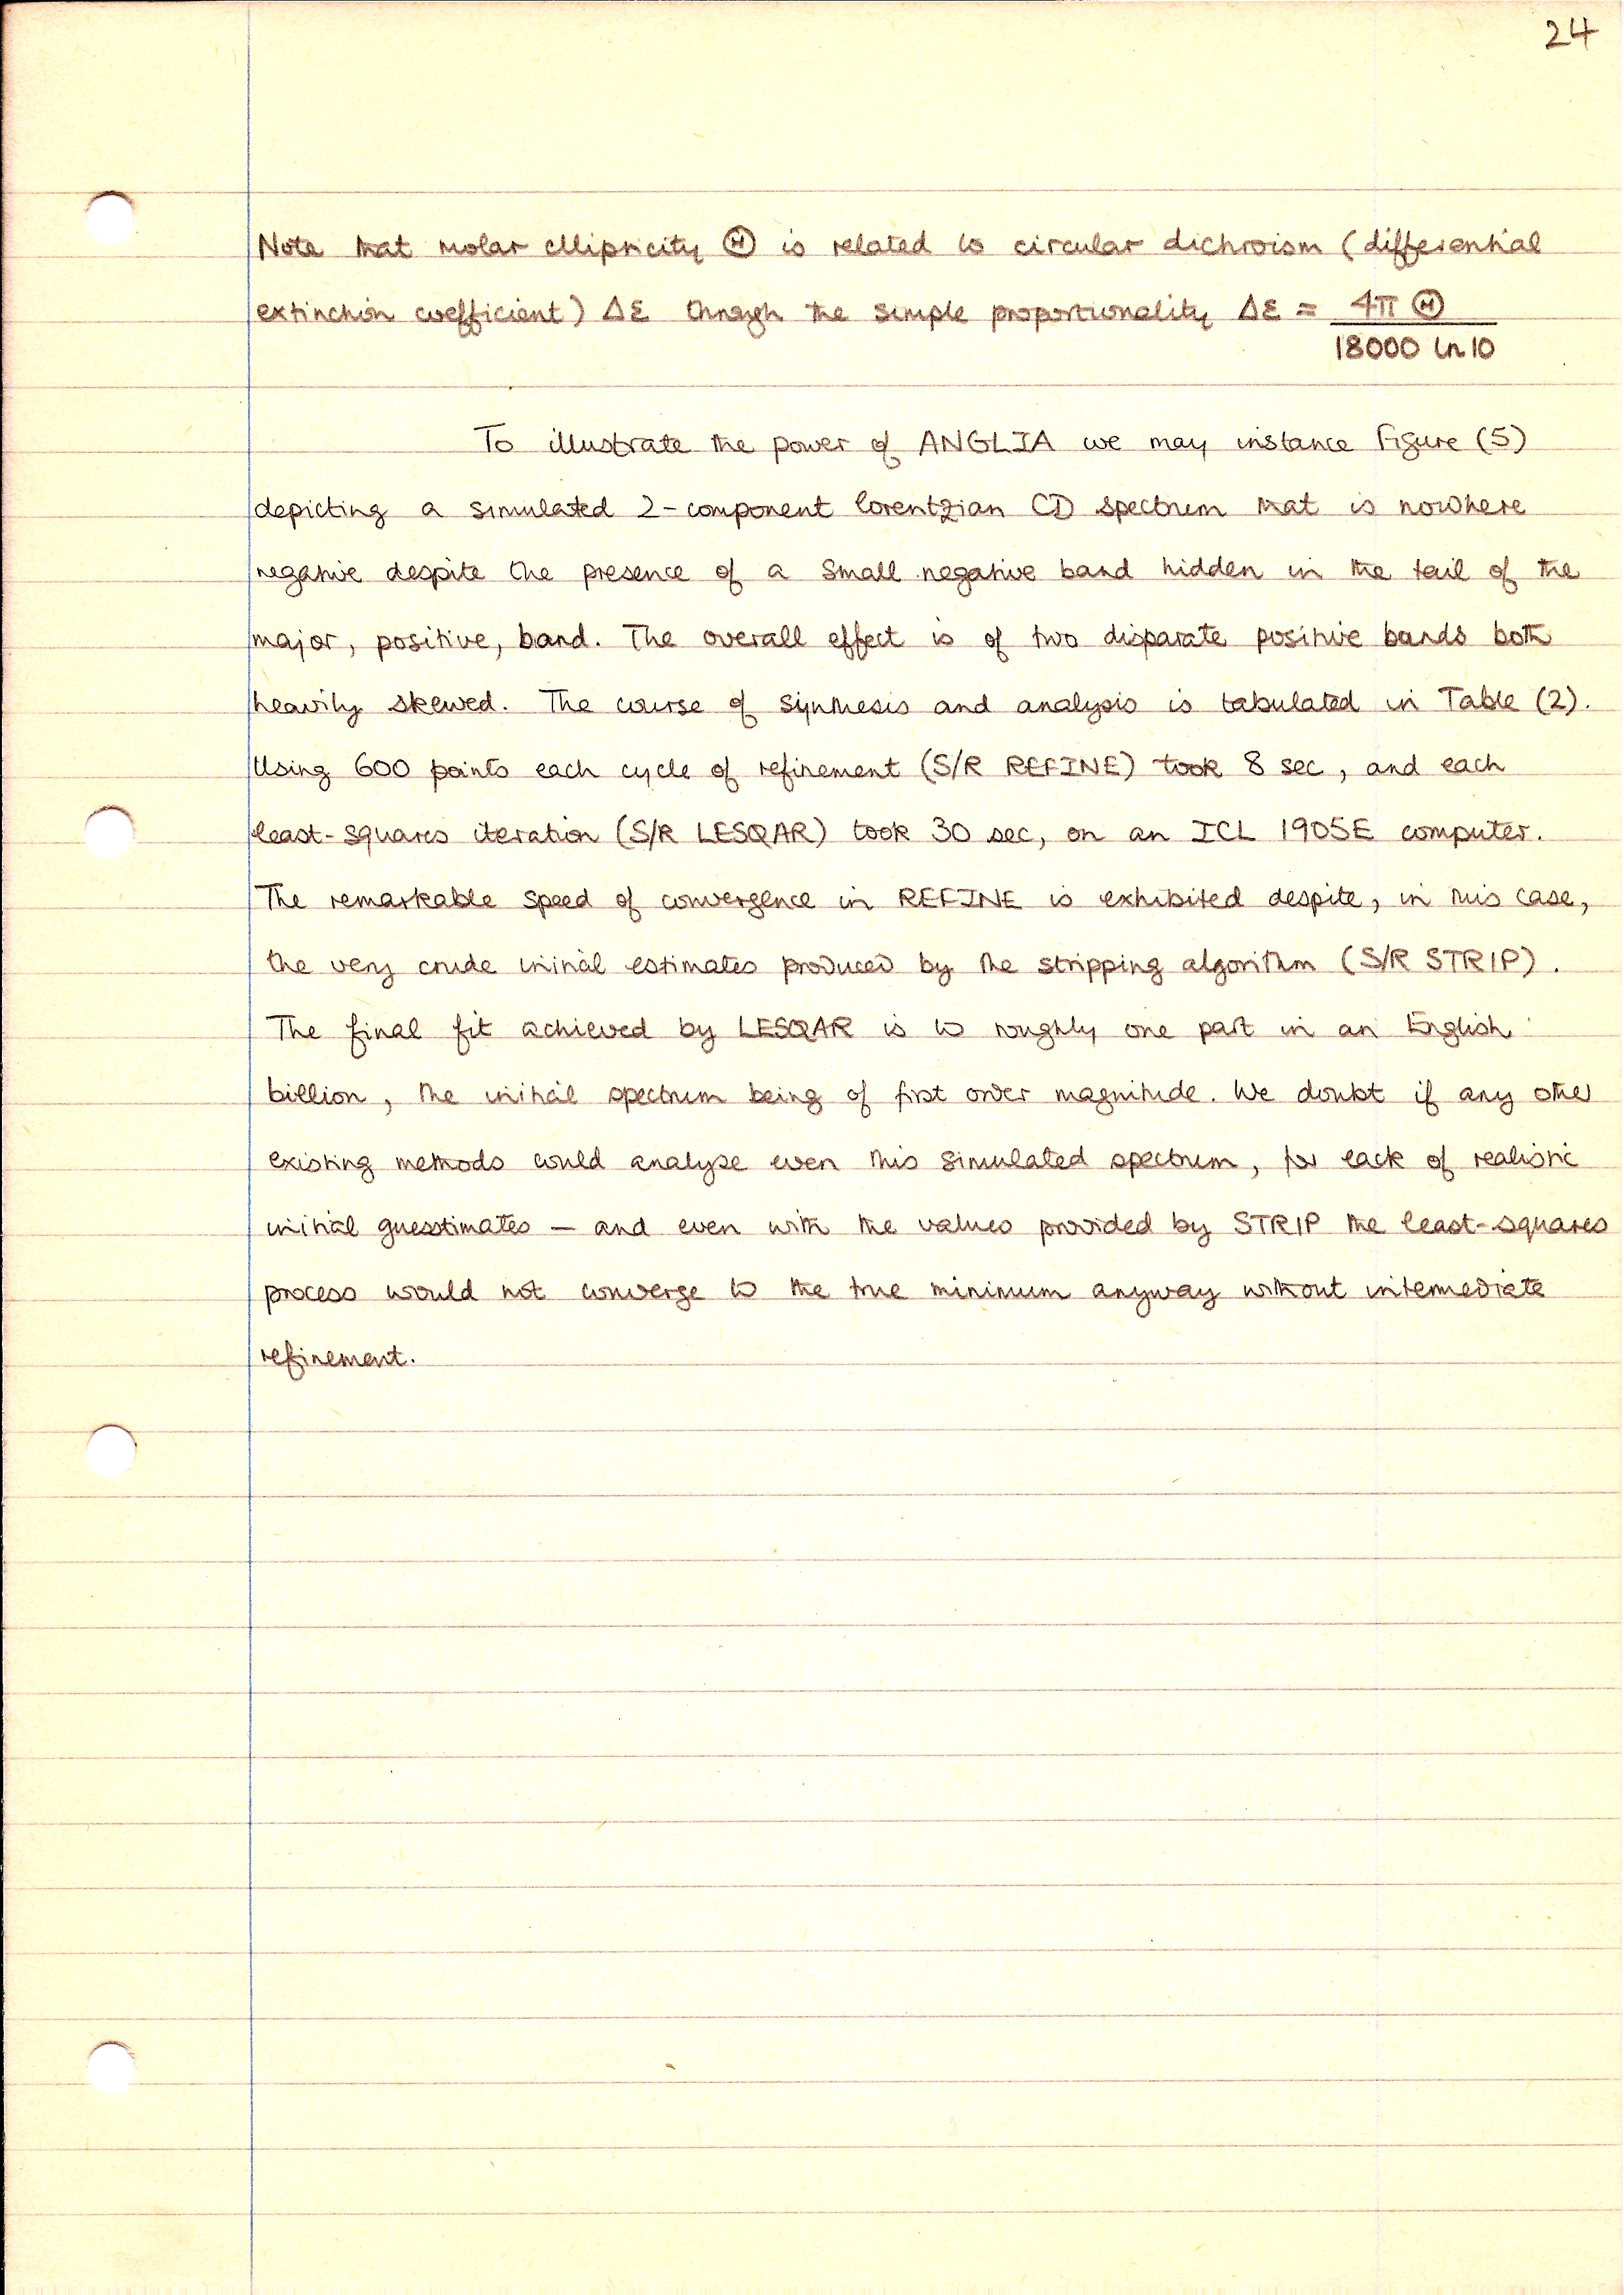 24
Note that molar ellipticity Ⓗ is related to circular dichroism (differential
extinction coefficient) Δε through the simple proportionality Δε = 4π Ⓗ
18000 ln 10
To illustrate the power of ANGLIA we may instance Figure (5)
depicting a simulated 2-component Lorentzian CD spectrum that is nowhere
negative despite the presence of a small negative band hidden in the tail of the
major, positive, band. The overall effect is of two disparate positive bands both
heavily skewed. The course of synthesis and analysis is tabulated in Table (2).
Using 600 points each cycle of refinement (S/R REFINE) took 8 sec, and each
least-squares iteration (S/R LESQAR) took 30 sec, on an ICL 1905E computer.
The remarkable speed of convergence in REFINE is exhibited despite, in this case,
the very crude initial estimates produced by the stripping algorithm (S/R STRIP).
The final fit achieved by LESQAR is to roughly one part in an English
billion, the initial spectrum being of first order magnitude. We doubt if any other
existing methods could analyse even this simulated spectrum, for lack of realistic
initial guesstimates — and even with the values provided by STRIP the least-squares
process would not converge to the true minimum anyway without intermediate
refinement.